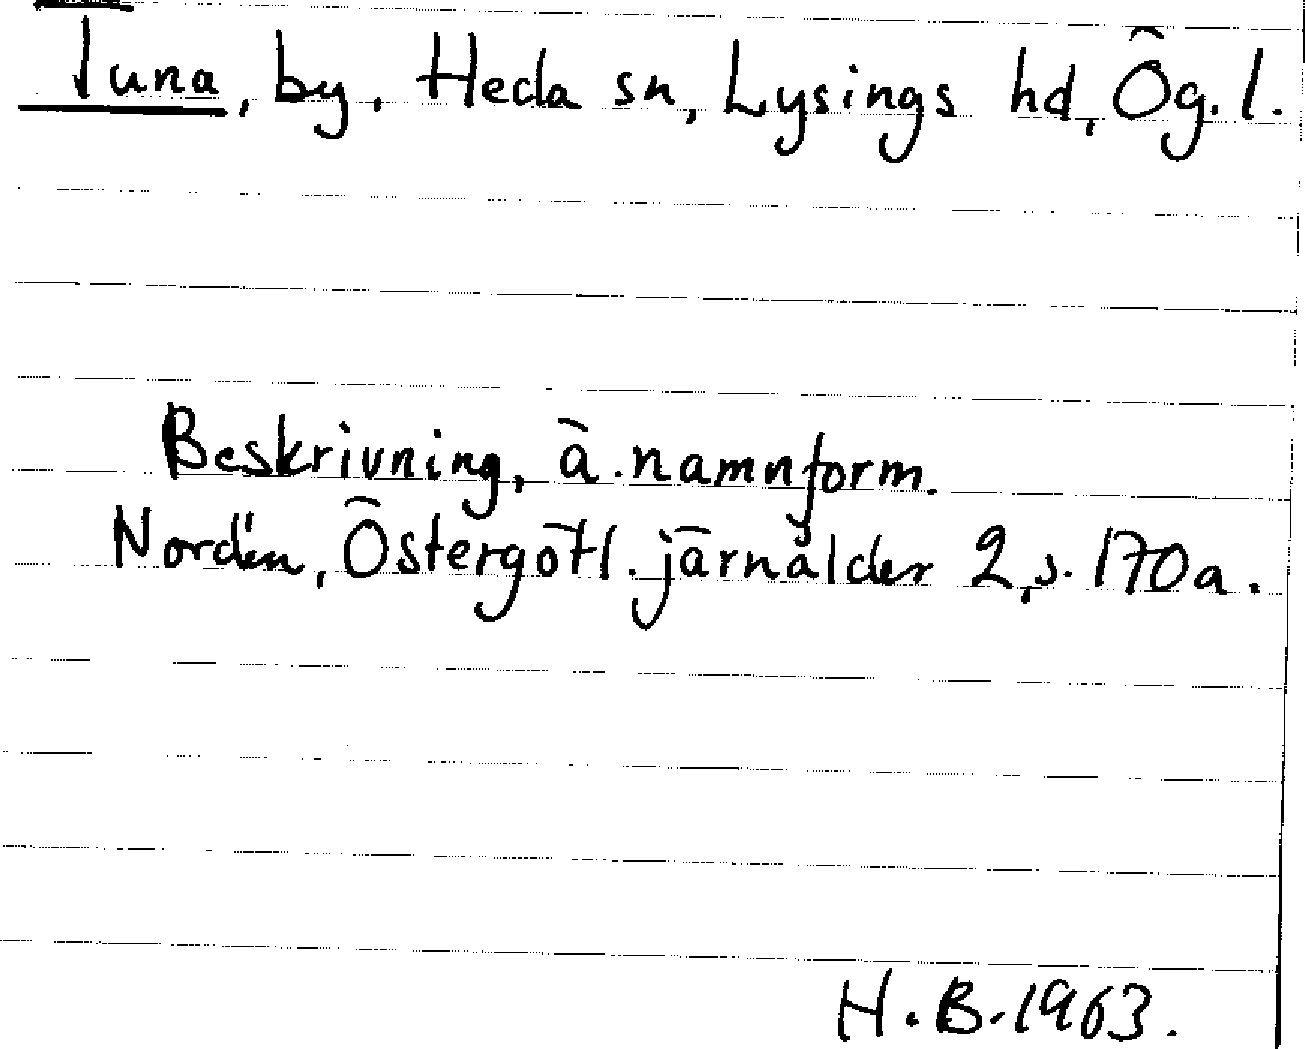 Tuna, by, Heda sn, Lysings hd, Ög. l.
Beskrivning, ä. namnform.
Nordén, Östergötl. järnålder 2, s. 170a.
H. B. 1963.